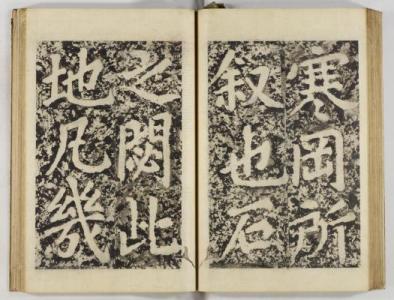 寒岡所
叙也石
之閟此
地凡幾